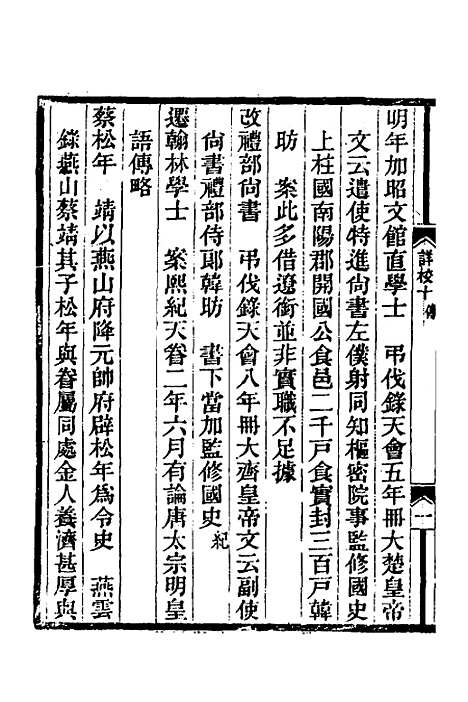 詳校十 傳
一
明年加昭文館直學士　弔伐錄天會五年冊大楚皇帝
文云遣使特進尙書左僕射同知樞密院事監修國史
上柱國南陽郡開國公食邑二千戸食實封三百戸韓
昉　案此多借遼銜並非實職不足據
改禮部尙書　弔伐錄天會八年冊大齊皇帝文云副使
尙書禮部侍郎韓昉　書下當加監修國史 紀
遷翰林學士　案熙紀天眷二年六月有論唐太宗明皇
語傳略
蔡松年　靖以燕山府降元帥府辟松年爲令史　燕雲
錄燕山蔡靖其子松年與眷屬同處金人養濟甚厚與